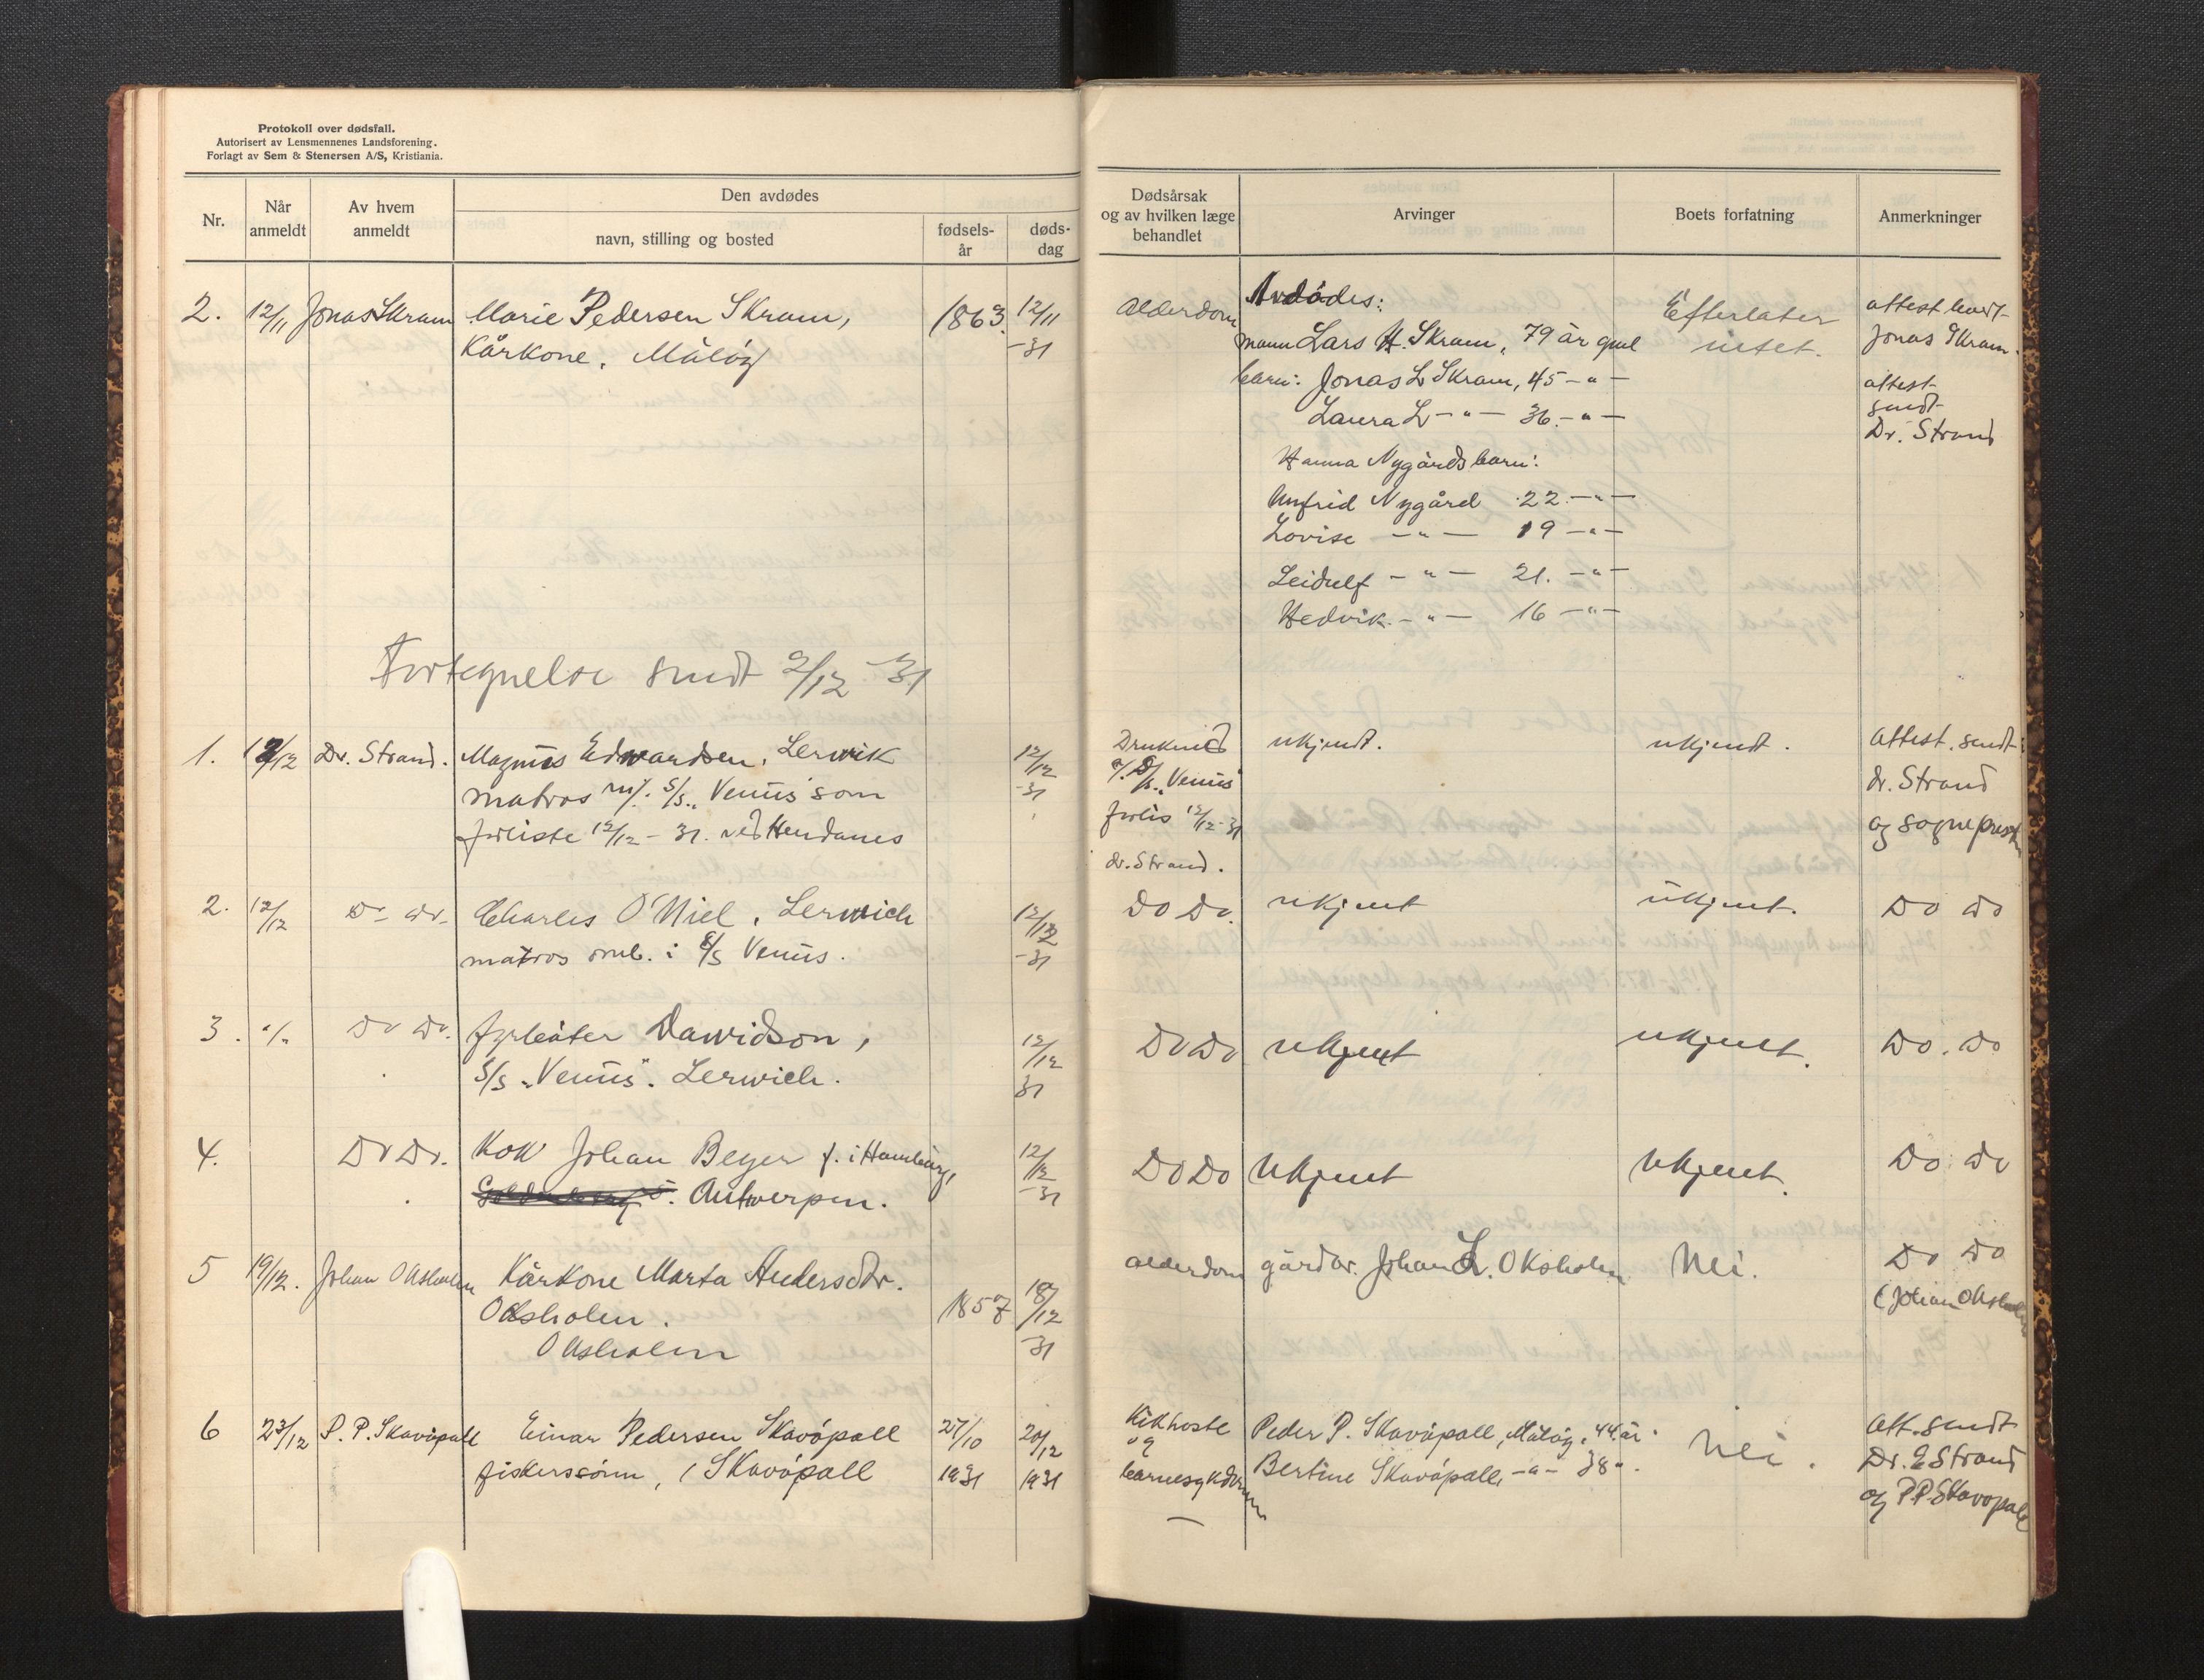 Protokoll over dødsfall.
Autorisert av Lensmennenes Landsforening.
Forlagt av Sem & Stenersen A/S, Kristiania.
Nr.
Når anmeldt
Av hvem anmeldt
Den avdødes
navn, stilling og bosted
fødsels-år
døds-dag
Dødsårsak
og av hvilken læge
behandlet
Arvinger
Boets forfatning
Anmerkninger
2. 12/11 Jonas Skram Marie Pedersen Skram, 1863. 12/11
Kårkone. Måløy -31
Alderdom
Avdødes:
mann Lars H. Skram, 79 år gml
barn: Jonas L Skram, 45 - " -
Laura L - " - 36. - " -
Hanna Nygårds barn:
Nygård 22. - " -
Lovise - " - 19 - " -
Leidulf - " - 21. - " -
Hedvik. - " - 16 - " -
Efterlater
intet.
attest
Jonas Skram.
attest
sendt
Dr. Strand
Fortegnelse sendt 2/12 -31
1. 12/12 Dr. Strand. Magnus Edwardsen, Lerwik 12/12
matros m/. S/s. „Venus" som -31
forliste 12/12 - 31. ved Hendanes
Druknet
S/s. „Venus"
forlis 12/12-31
dr. Strand.
ukjendt.
ukjendt.
Attest. sendt
dr. Strand
og sogneprest
2. 12/12 Do Do. Charles O'Niel, Lerwich 12/12
matros omb. i S/S Venus. -31
Do Do.
ukjent
ukjent.
Do Do
3. "/" Do Do. fyrbøter Dawidson, 12/12
S/s „Venus". Lerwich. 31
Do Do
ukjent
ukjent.
Do. Do
4. Do Do. Kok Johan Beyer f. i Hamburg, 12/12
Antwerpen. -31
Do Do
Ukjent
Ukjent.
Do Do
5 19/12. Johan Oksholm Kårkone Marta Andersdtr.
Oksholm. 1857 18/12
Oksholm -31
alderdom
gårdbr. Johan L. Oksholm
Nei.
Do Do
(Johan Oksholm
6 23/12 P. P. Skavøpoll Einar Pedersen Skavøpoll 27/10 20/12
fiskerssønn, Skavøpoll 1931 1931
Kikhoste
og
barnesykdom
Peder P. Skavøpoll, Måløy, 44 år.
Bertine Skavøpoll, - " - 38 ".
Nei.
Att. sendt
Dr. E Strand
og P.P. Skavøpoll